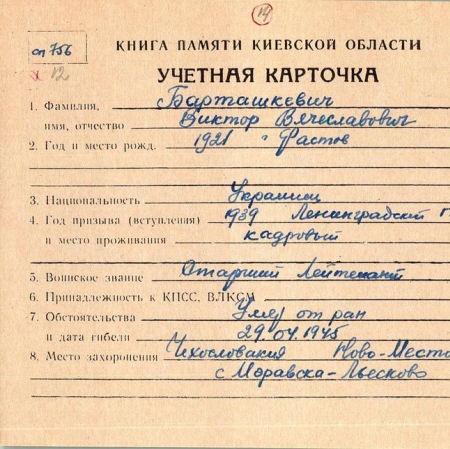 14
оп 756
КНИГА ПАМЯТИ КИЕВСКОЙ ОБЛАСТИ
х 12
УЧЕТНАЯ КАРТОЧКА
1. Фамилия, Барташкевич
имя, отчество Виктор Вячеславович
2. Год и место рожд. 1921 г Фастов
3. Национальность Украинец
4. Год призыва (вступления) 1939 Ленинградский г
и место проживания кадровый
5. Воинское звание Старший Лейтенант
6. Принадлежность к КПСС, ВЛКСМ
7. Обстоятельства Умер от ран
и дата гибели 29.04.1945
8. Место захоронения Чехословакия Ново-Место
с Моравска-Льесково